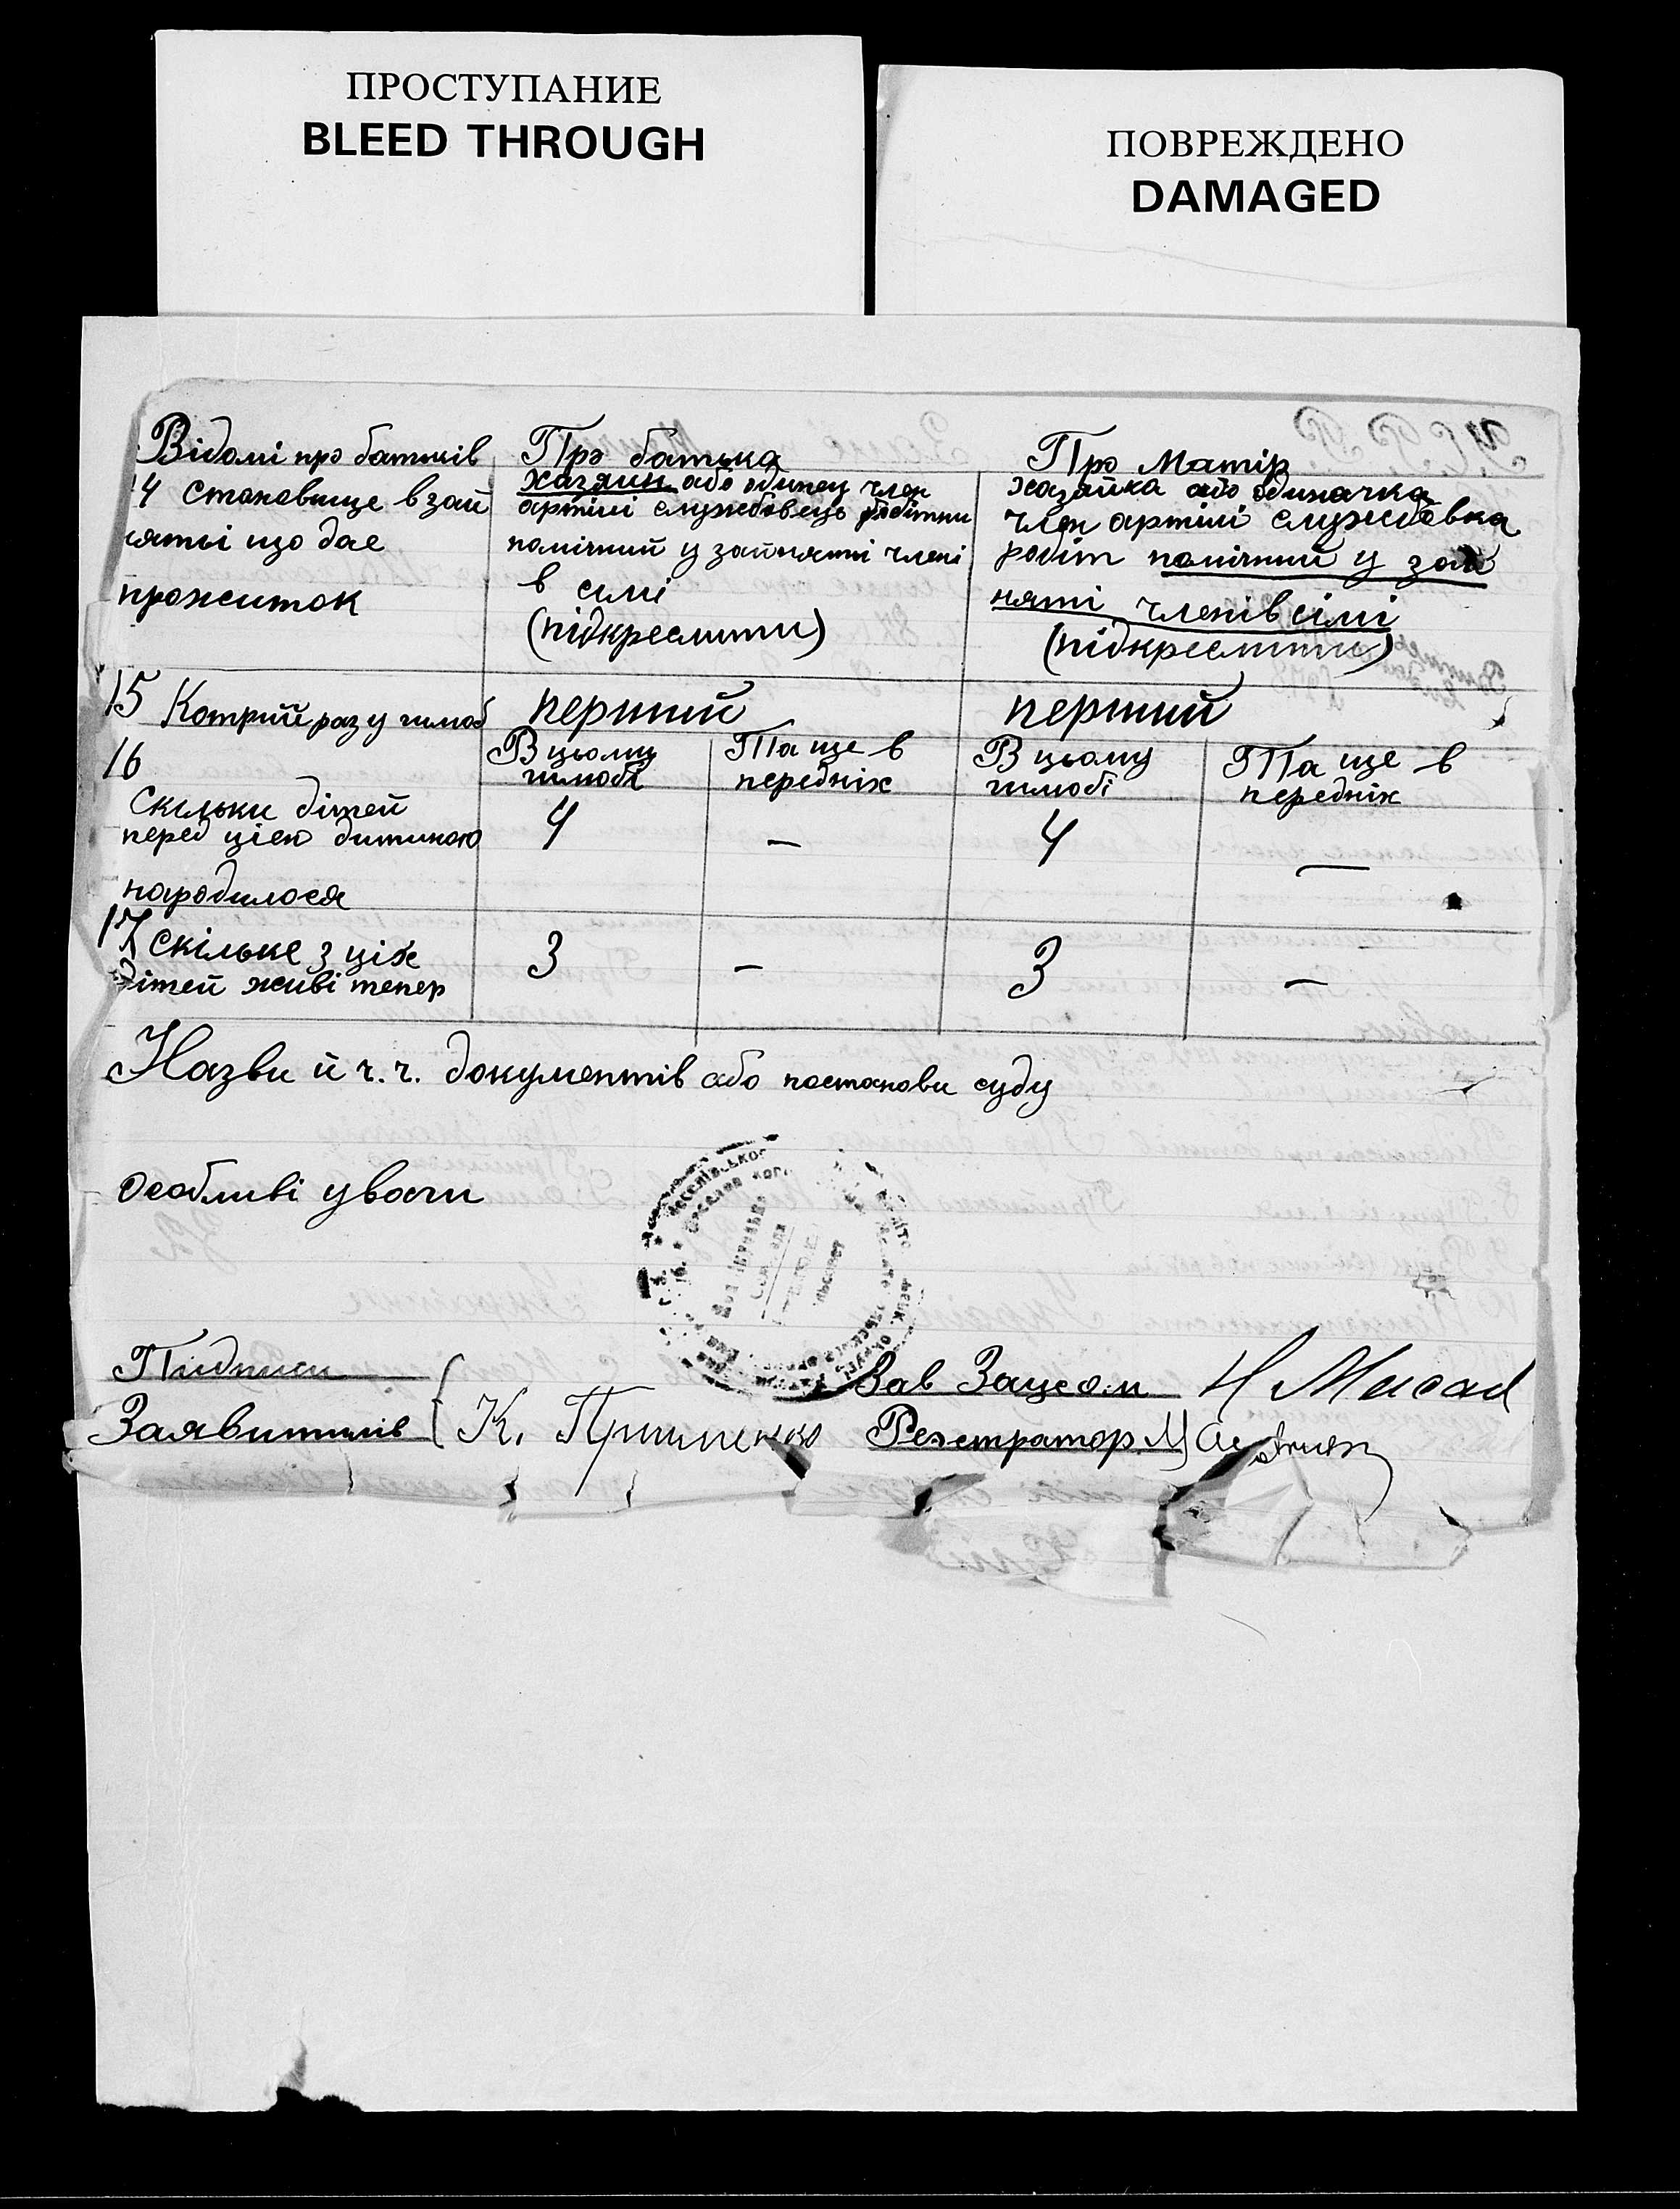 ПРОСТУПАНИЕ
BLEED THROUGH
ПОВРЕЖДЕНО
DAMAGED
Відомі про батьків
Про батька
Про Матір
14 становище в зай
няті що дае
прожиток
хазяин або одинец член
артілі службовець робітни
помічний у зайняті члені
в сімі
(підкреслити)
хазяйка або одиначка
член артілі службовка
робіт помічний у зай
няті членів сімі
(підкреслити)
15 Котрий раз у шлюб
перший
перший
16
Скільки дітей
перед цією дитиною
народилося
В цьому
шлюбі
Та ще в
передніх
В цьому
шлюбі
Та ще в
передніх
4
–
4
–
17 Скільке з ціх
дітей живі тепер
3
–
3
–
Назви й ч.ч. документів або постанови суду
Особливі уваги
Підписи
Заявителів
К. Пришенко
Зав Загсом
Н
Регстратор